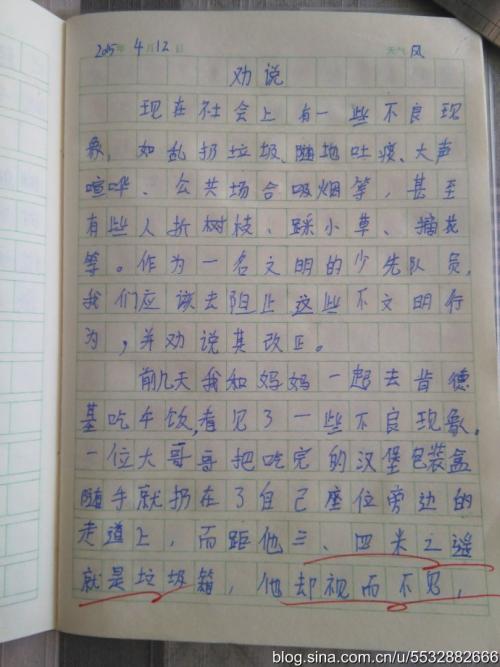 2015年 4月12日 天气 风
劝说
现在社会上有一些不良现
象，如乱扔垃圾、随地吐痰、大声
喧哗、公共场合吸烟等，甚至
有些人折树枝、踩小草、摘花
等。作为一名文明的少先队员，
我们应该去阻止这些不文明行
为，并劝说其改正。
前几天我和妈妈一起去肯德
基吃午饭，看见了一些不良现象。
一位大哥哥把吃完的汉堡包装盒
随手就扔在了自己座位旁边的
走道上，而距他三、四米之遥
就是垃圾箱，他却视而不见，
blog.sina.com.cn/u/5532882666